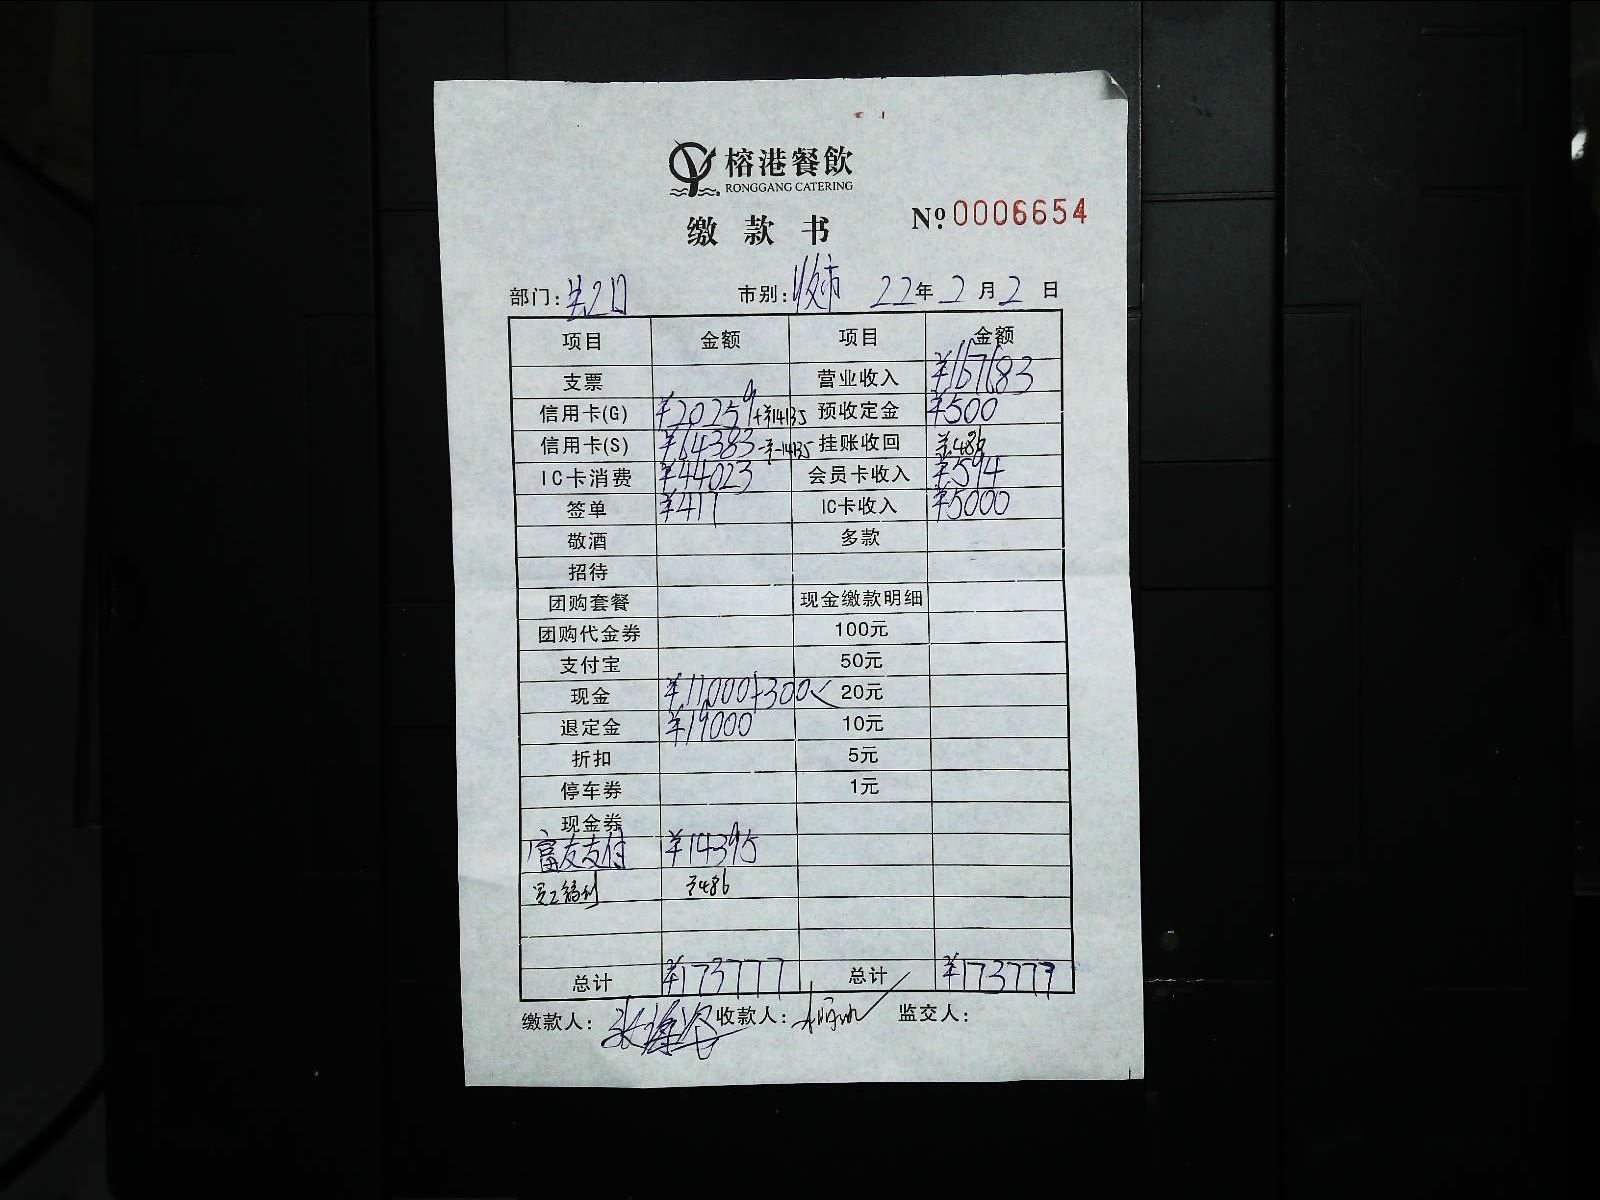 榕港餐飲
RONGGANG CATERING
缴款书
Nº.0006654
部门: 市别:收市 22年2月2日
项目 金额 项目 金额
支票 营业收入 ¥167683
信用卡(G) ¥20259+¥14135 预收定金 ¥500
信用卡(S) ¥64383-¥14135 挂账收回 ¥486
IC卡消费 ¥44023 会员卡收入 ¥594
签单 ¥417 IC卡收入 ¥5000
敬酒 多款
招待
团购套餐 现金缴款明细
团购代金券 100元
支付宝 50元
现金 ¥11000+300 20元
退定金 ¥19000 10元
折扣 5元
停车券 1元
现金券
富友支付 ¥14395
员工福利 ¥486
总计 ¥173777 总计 ¥173777
缴款人: 收款人: 监交人: